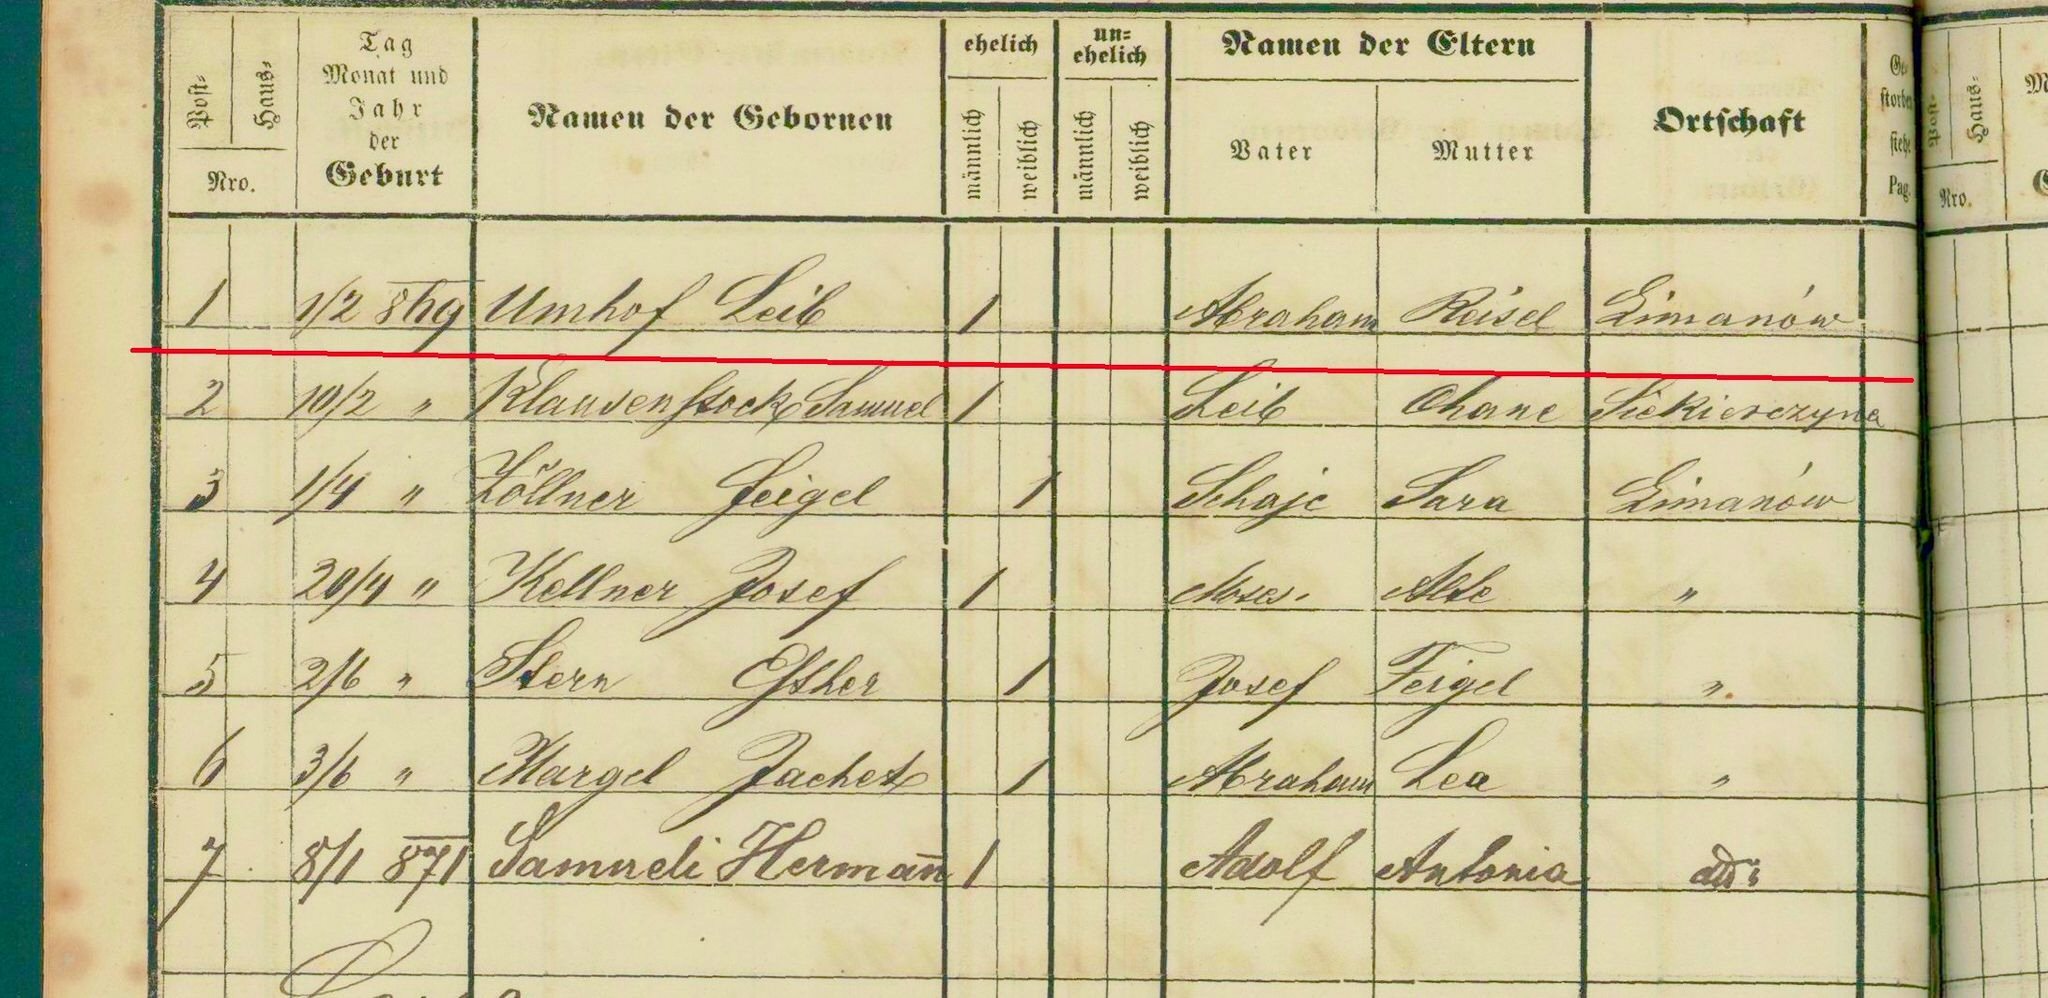 Post- Haus- Nro.
Tag
Monat und
Jahr
der
Geburt
Namen der Gebornen
ehelich
männlich weiblich
un-
ehelich
männlich weiblich
Namen der Eltern
Vater Mutter
Ortschaft
Ge-
storben
siehe
Pag.
Post- Haus-
Nro.
1 1/2 869 Umhof Leib 1 Abraham Reisel Limanów
2 10/2 " Klausenstock Samuel 1 Leib Chane Siekierczyna
3 1/4 " Zöllner Feigel 1 Schaje Sara Limanów
4 20/4 " Kellner Josef 1 Moses Alte "
5 2/6 " Stern Esther 1 Josef Feigel "
6 3/6 " Margel Jachet 1 Abraham Lea "
7 8/1 871 Samueli Hermañ 1 Adolf Antonia